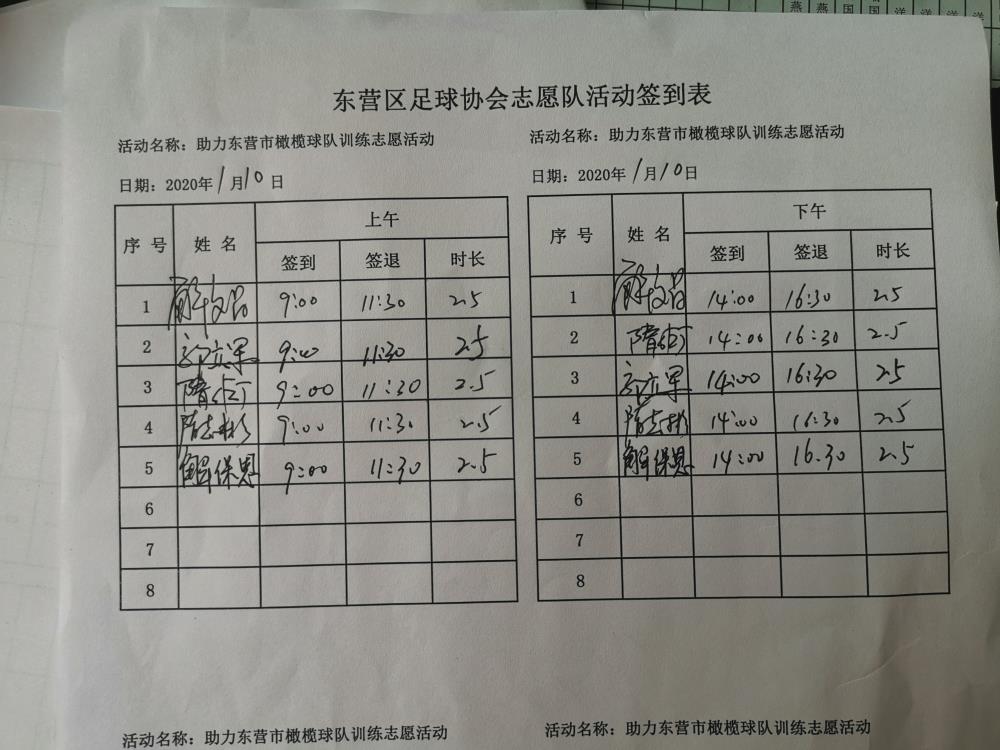 东营区足球协会志愿队活动签到表
活动名称：助力东营市橄榄球队训练志愿活动
日期：2020年1月10日
序号 姓名 上午
签到 签退 时长
1 解文品 9:00 11:30 2.5
2 9:00 11:30 2.5
3 9:00 11:30 2.5
4 9:00 11:30 2.5
5 解保恩 9:00 11:30 2.5
6
7
8
活动名称：助力东营市橄榄球队训练志愿活动
日期：2020年1月10日
序号 姓名 下午
签到 签退 时长
1 解文品 14:00 16:30 2.5
2 14:00 16:30 2.5
3 14:00 16:30 2.5
4 14:00 16:30 2.5
5 解保恩 14:00 16.30 2.5
6
7
8
活动名称：助力东营市橄榄球队训练志愿活动
活动名称：助力东营市橄榄球队训练志愿活动